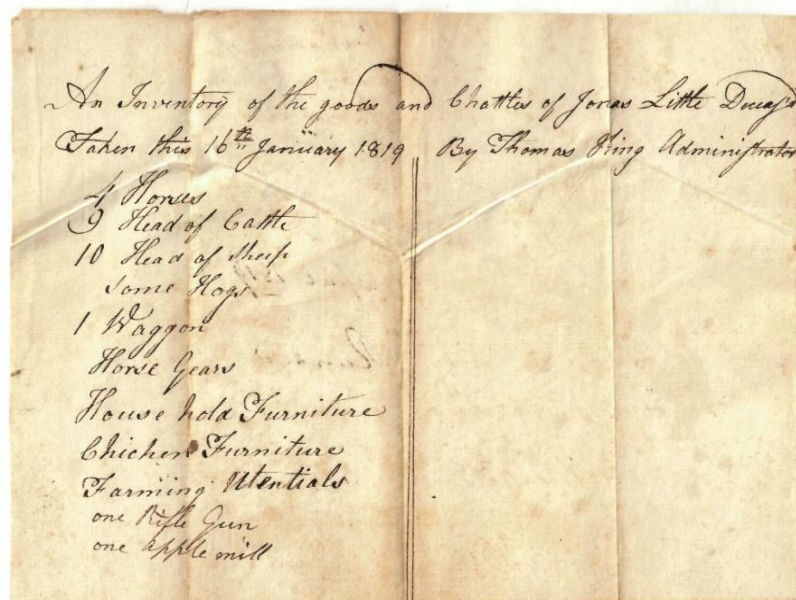 An Inventory of the goods and Chattles of Jonas Little Deceasd
Taken this 16th January 1819 By Thomas King Administrator
4 Horses
9 Head of Cattle
10 Head of Sheep
some Hogs
1 Waggon
Horse Gears
House hold Furniture
Chicken Furniture
Farming Utentials
one Rifle Gun
one apple mill